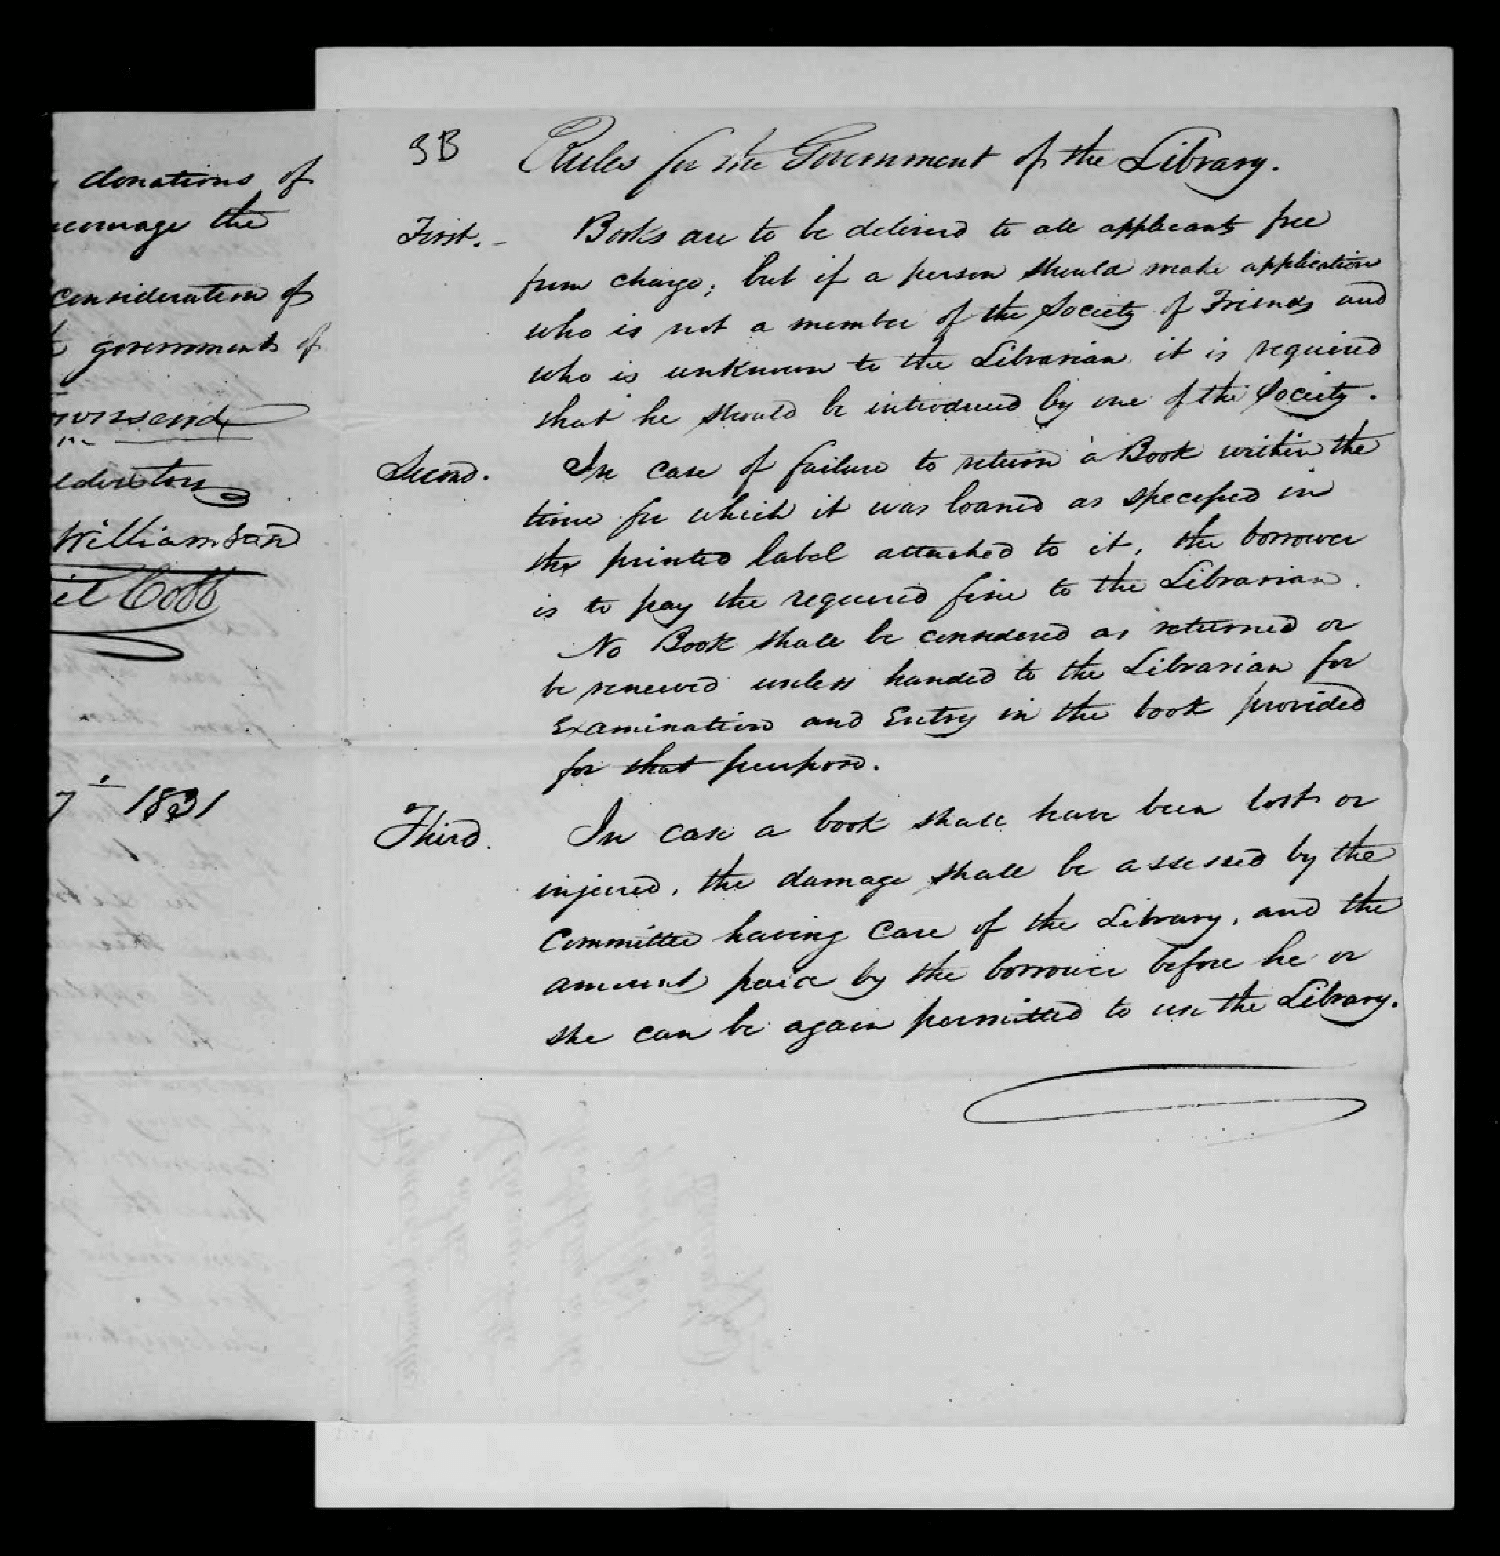 donations of
the
consideration of
governments of
Williamson
Cobb
7 1831
3B
Rules for the Government of the Library.
First. - Books are to be delivered to all applicants free
from charge; but if a person should make application
who is not a member of the Society of Friends and
who is unknown to the Librarian it is required
that he should be introduced by one of the Society.
Second. In case of failure to return a Book within the
time for which it was loaned as specified in
the printed label attached to it, the borrower
is to pay the required fine to the Librarian.
No Book shall be considered as returned or
be renewed unless handed to the Librarian for
Examination and Entry in the book provided
for that purpose.
Third. In case a book shall have been lost or
injured, the damage shall be assessed by the
Committee having care of the Library, and the
amount paid by the borrower before he or
she can be again permitted to use the Library.